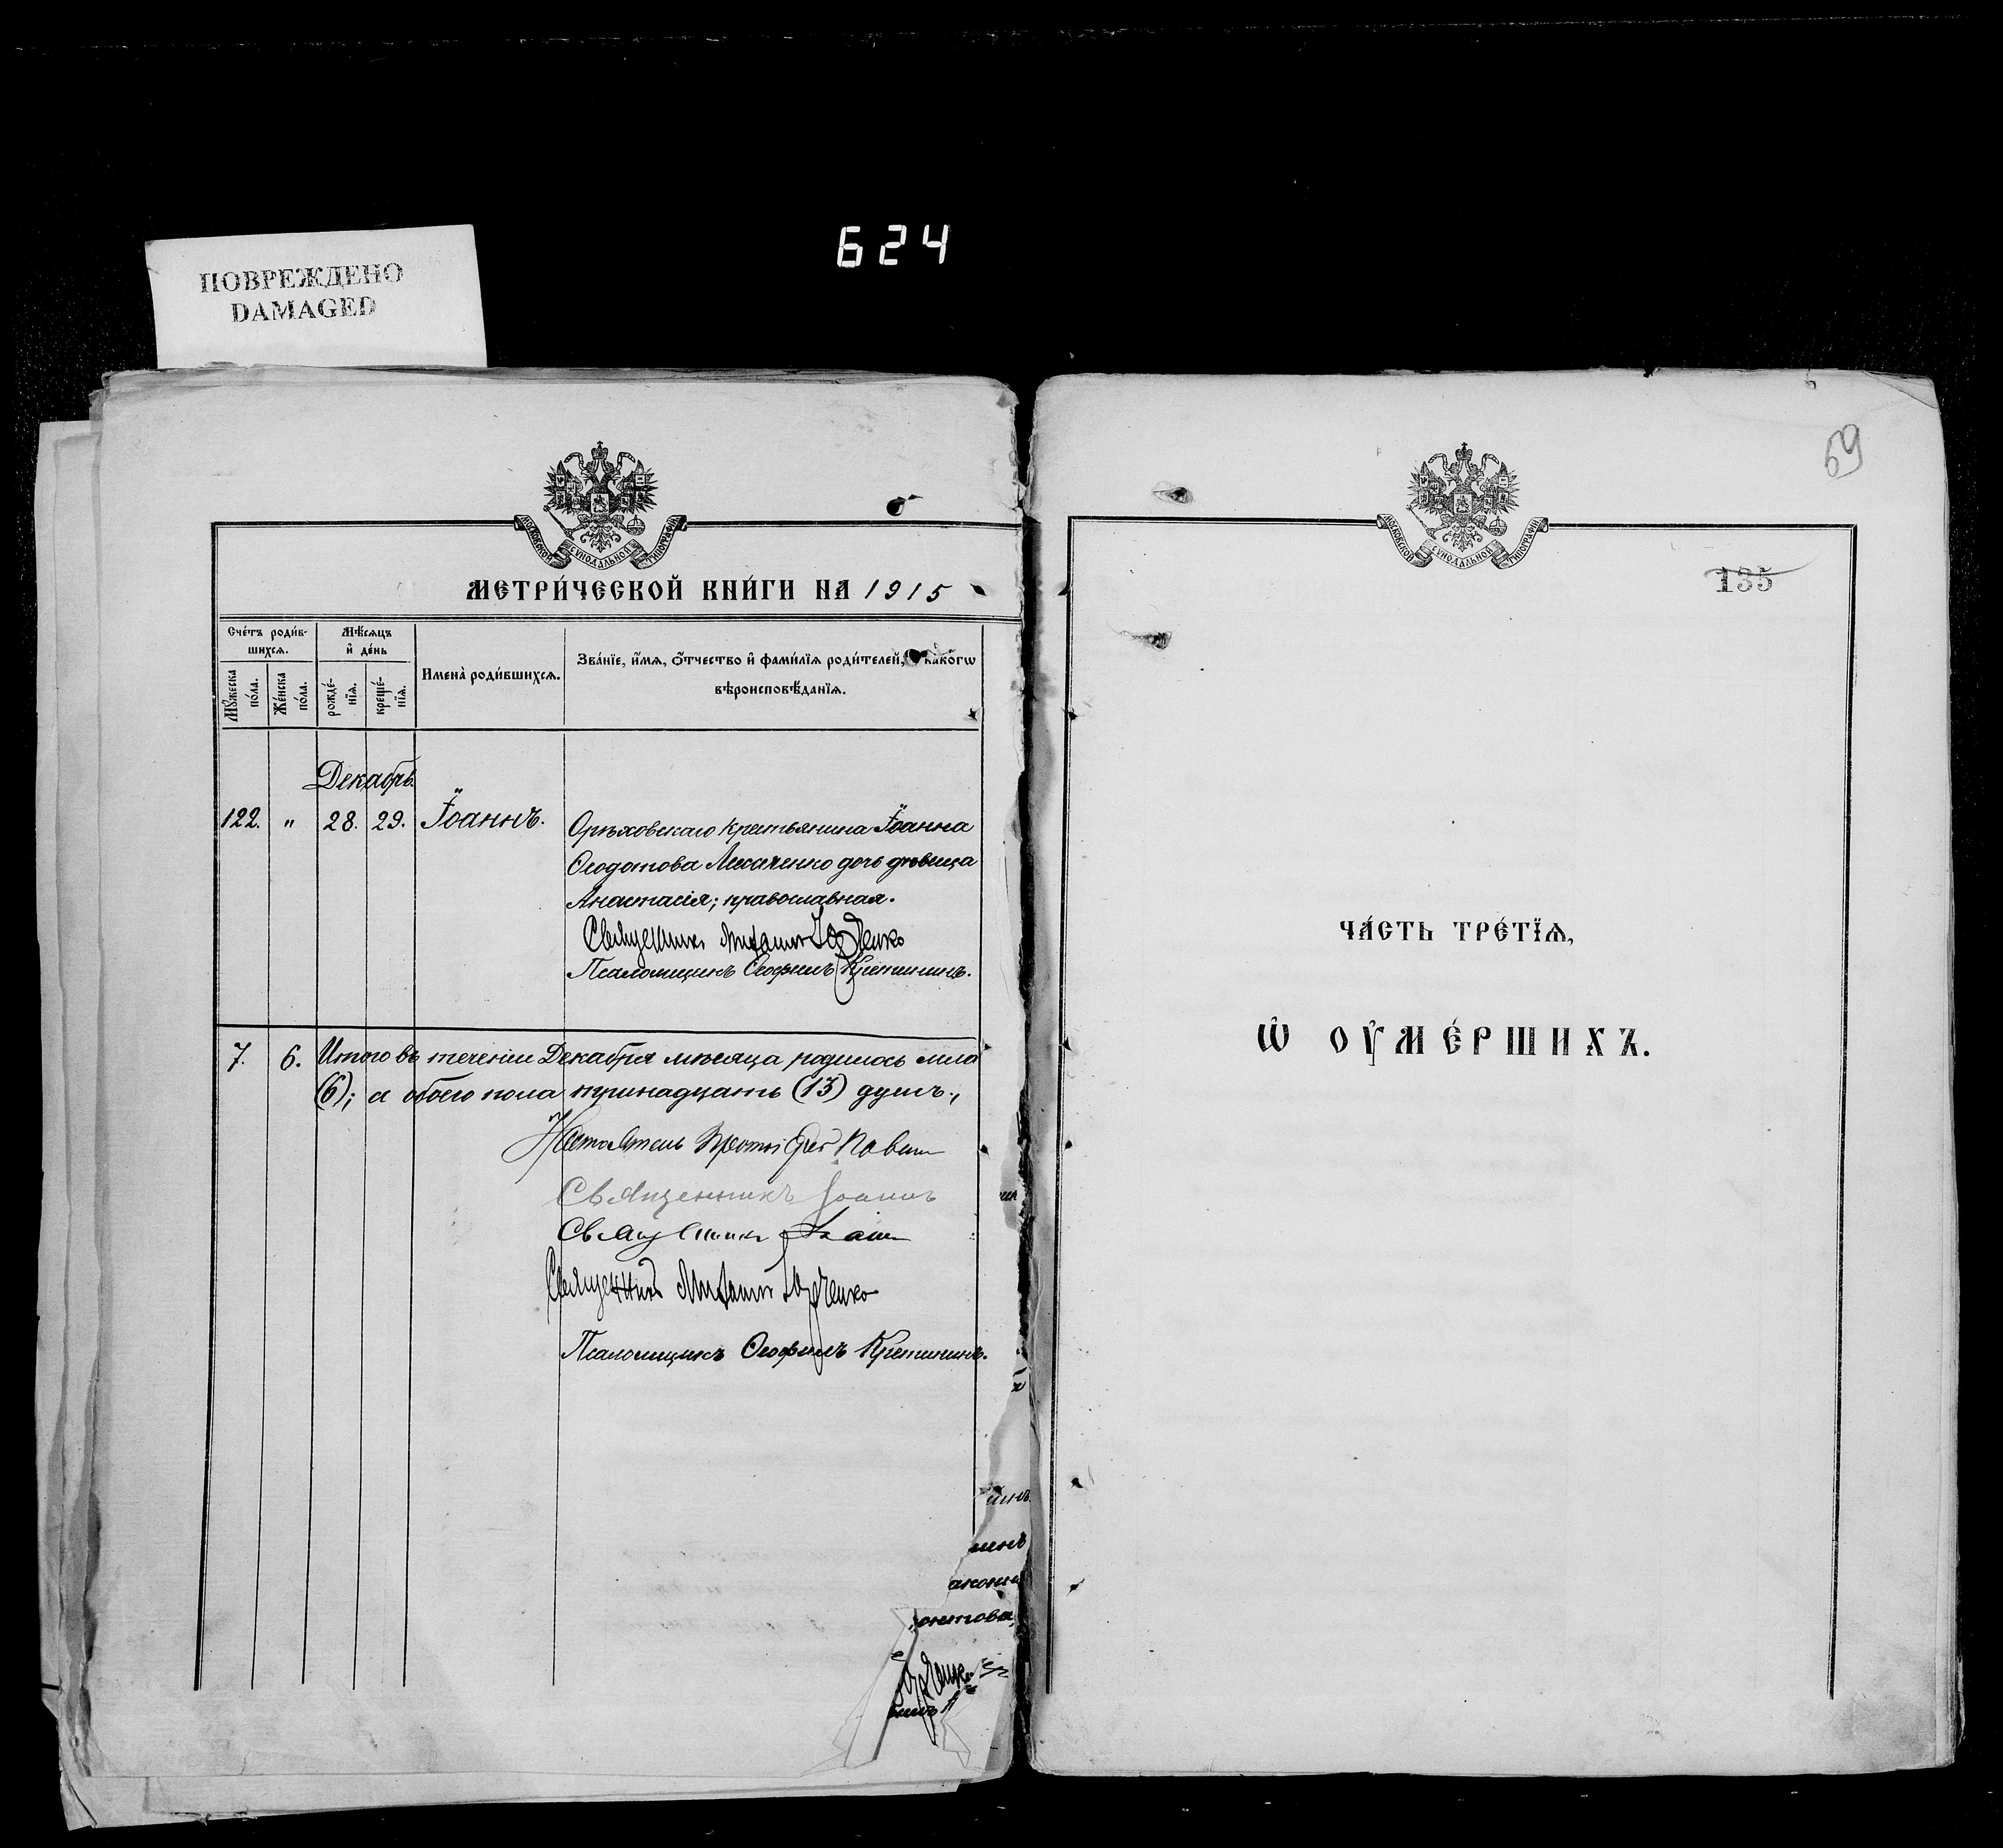 624
ПОВРЕЖДЕНО
DAMAGED
МОСКОВСКОЙ СѴНОДАЛЬНОЙ ТИПОГРАФІИ
МЕТРИ́ЧЕСКОЙ КНИ́ГИ НА 1915
Сче́тъ роди́в-
шихсѧ.
Мѣ́сѧцъ
и҆ де́нь
Мꙋ́жеска
по́ла.
Же́нска
по́ла.
рожде́-
нїѧ.
креще́-
нїѧ.
Имена̀ роди́вшихсѧ.
Зва́нїе, и҆́мѧ, ѻ҆́тчество и҆ фами́лїѧ роди́телей, како́гѡ
вѣроисповѣ́данїѧ.
Декабрь.
122. " 28. 29. Іоаннъ.
Орѣховскаго крестьянина Іоанна
Ѳеодотова дочь дѣвица
Анастасія; православная.
Священникъ Михаилъ
Псаломщикъ Ѳеофилъ Кретининъ.
7. 6. Итого въ теченіи Декабря мѣсяца родилось
(6); а обоего пола тринадцать (13) душъ.,
Настоятель Протоіерей Павелъ
Священникъ Іоаннъ
Священникъ
Священникъ Михаилъ
Псаломщикъ Ѳеофилъ Кретининъ.
69
МОСКОВСКОЙ СѴНОДАЛЬНОЙ ТИПОГРАФІИ
135
ЧА́СТЬ ТРЕ́ТЇѦ,
Ѡ҆ ОУ҆МЕ́РШИХЪ.